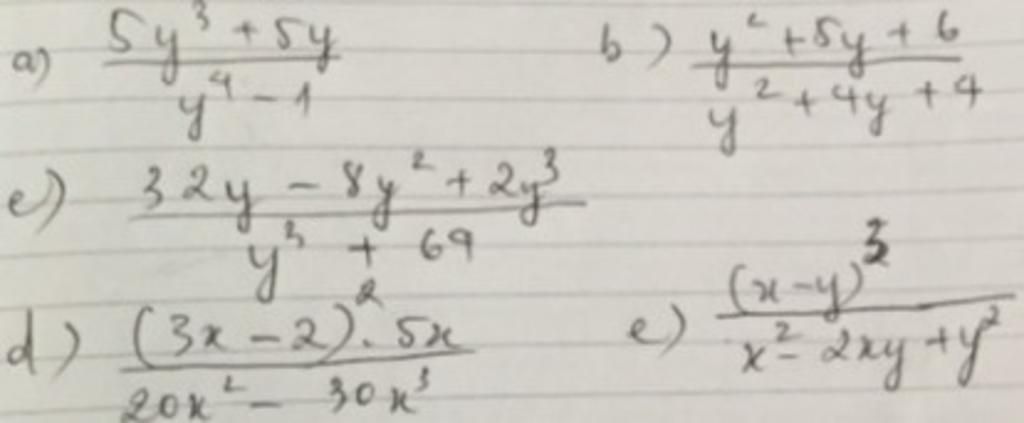 a) (5y³ + 5y)/(y⁴ - 1) b) (y² + 5y + 6)/(y² + 4y + 4)
c) (32y - 8y² + 2y³)/(y³ + 64)
d) ((3x - 2)² . 5x)/(20x² - 30x³) e) (x - y)³/(x² - 2xy + y²)